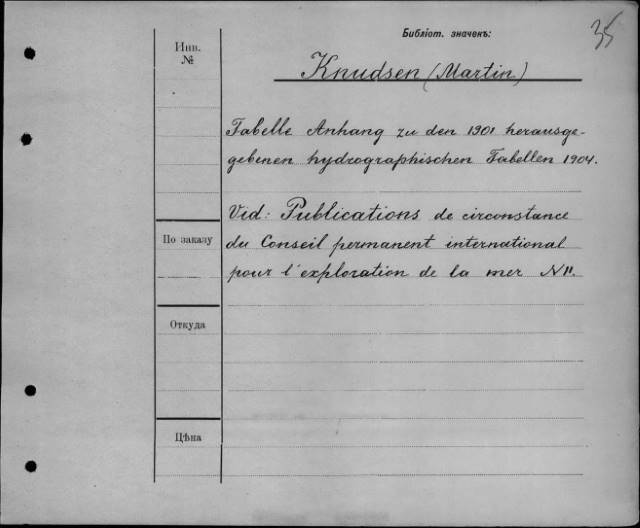 35
Библіот. значекъ:
Инв.
№
Knudsen (Martin)
Tabelle Anhang zu den 1901 herausge-
gebenen hydrographischen Tabellen 1904.
Vid: Publications de circonstance
du Conseil permanent international
pour l'exploration de la mer N 11.
По заказу
Откуда
Цѣна